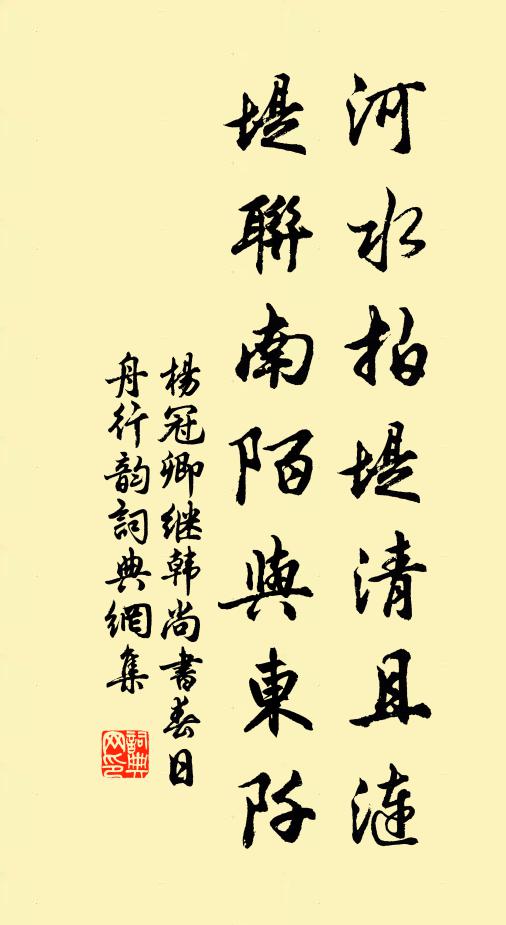 河水拍堤清且漣
堤聯南陌與東阡
楊冠卿继韩尚書春日
舟行韵詞典網集
詞典
网印